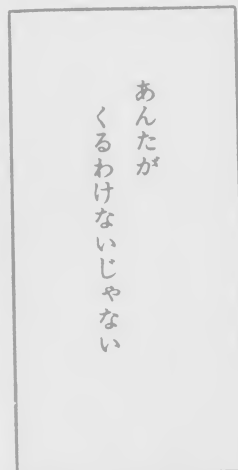 あんたが
くるわけないじゃない